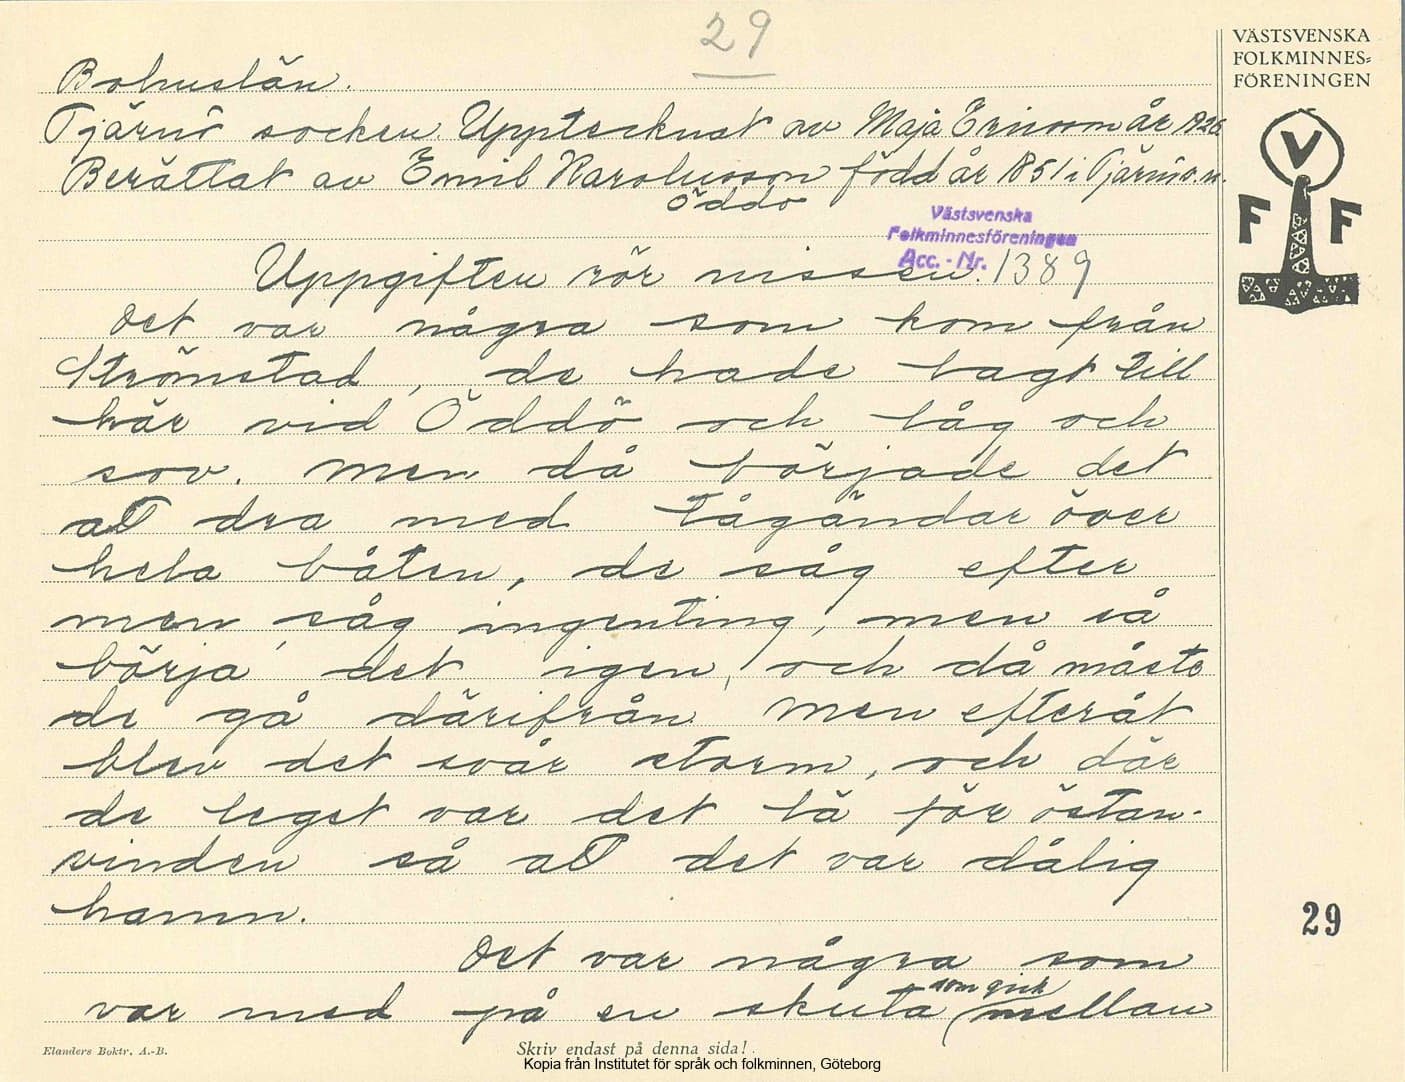 29
VÄSTSVENSKA
FOLKMINNES-
FÖRENINGEN
V
F F
Bohuslän.
Tjärnö socken. Upptecknat av Maja Ericson år 1926
Berättat av Emil Karolusson född år 1851 i Tjärnö sn.
Öddö
Västsvenska
Folkminnesföreningen
Acc. - Nr. 1389
Uppgiften rör nissen.
Det var några som kom från
Strömstad, de hade lagt till
här vid Öddö och låg och
sov. Men då började det
att dra med tågändar över
hela båten, de såg efter
men såg ingenting, men så
börja det igen, och då måste
de gå därifrån. Men efteråt
blev det svår storm, och där
de leget var det lä för östan-
vinden så att det var dålig
hamn.
29
Det var några som
var med på en skuta (som gick mellan
Elanders Boktr. A.-B.
Skriv endast på denna sida!
Kopia från Institutet för språk och folkminnen, Göteborg